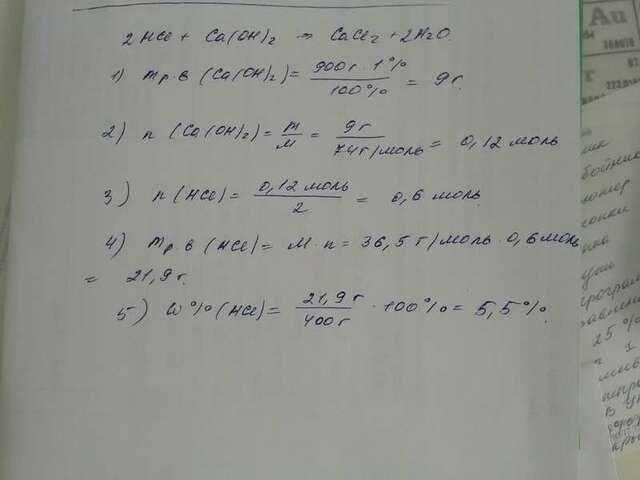 2HCl + Ca(OH)₂ → CaCl₂ + 2H₂O.
1) m р.в (Ca(OH)₂) = 900г · 1% / 100% = 9г.
2) n (Ca(OH)₂) = m / M = 9г / 74г/моль = 0,12 моль
3) n (HCl) = 0,12 моль / 2 = 0,6 моль.
4) m р.в (HCl) = M · n = 36,5 г/моль · 0,6 моль
= 21,9 г.
5) W%(HCl) = 21,9 г / 400г · 100% = 5,5%.
Au
25%